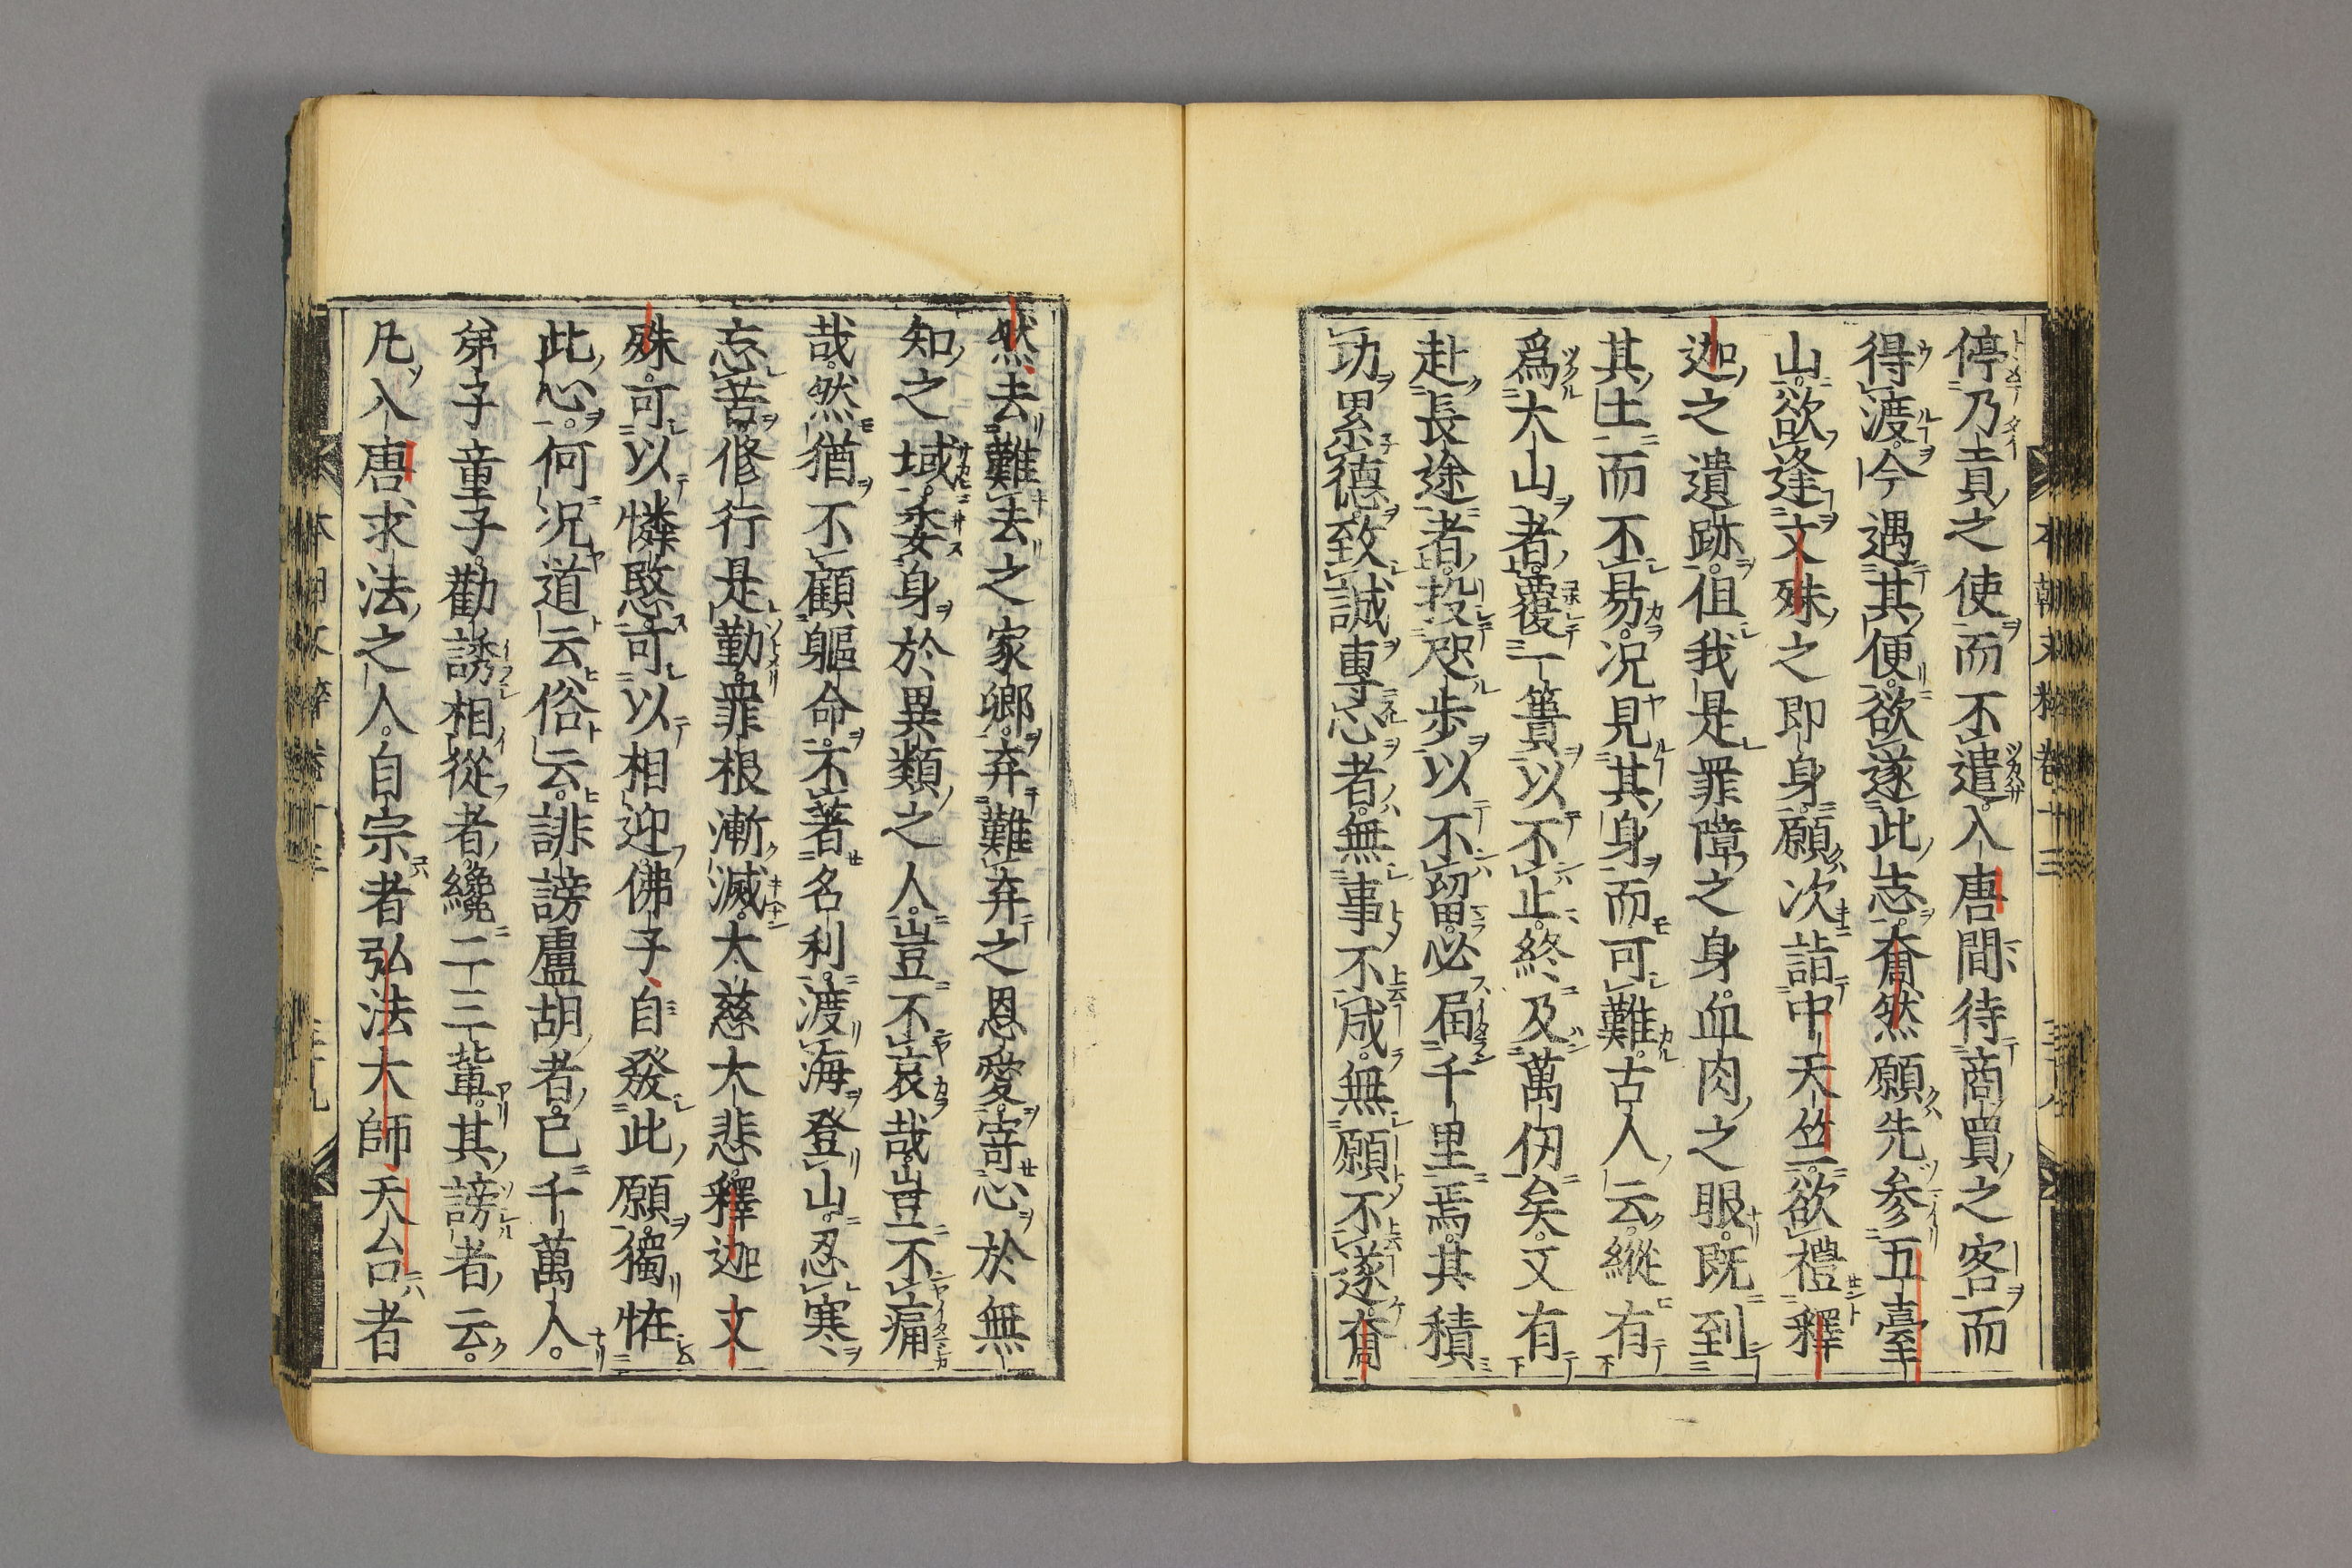 停乃貢之使而不遣入唐間待商買之客而
得渡今遇其便欲遂此志奝然願先参五臺
山欲逢文殊之即身願次詣中天竺欲禮釋
迦之遺跡徂我是罪障之身血肉之眼既到
其土而不易況見其身而可難古人云縱有
爲大山者覆一簣以不止終及萬仭矣又有
赴長途者投咫歩以不留必届千里焉其積
功累德致誠專心者無事不成無願不遂奝
然去難去之家鄉弃難弃之恩愛寄心於無
知之域委身於異類之人豈不哀哉豈不痛
哉然猶不顧軀命不著名利渡海登山忍寒
忘苦修行是勤罪根漸滅大慈大悲釋迦文
殊可以憐愍可以相迎佛子自發此願獨恠
此心何況道云俗云誹謗盧胡者已千萬人
弟子童子勸誘相從者纔二三輩其謗者云
凡入唐求法之人自宗者弘法大師天台者